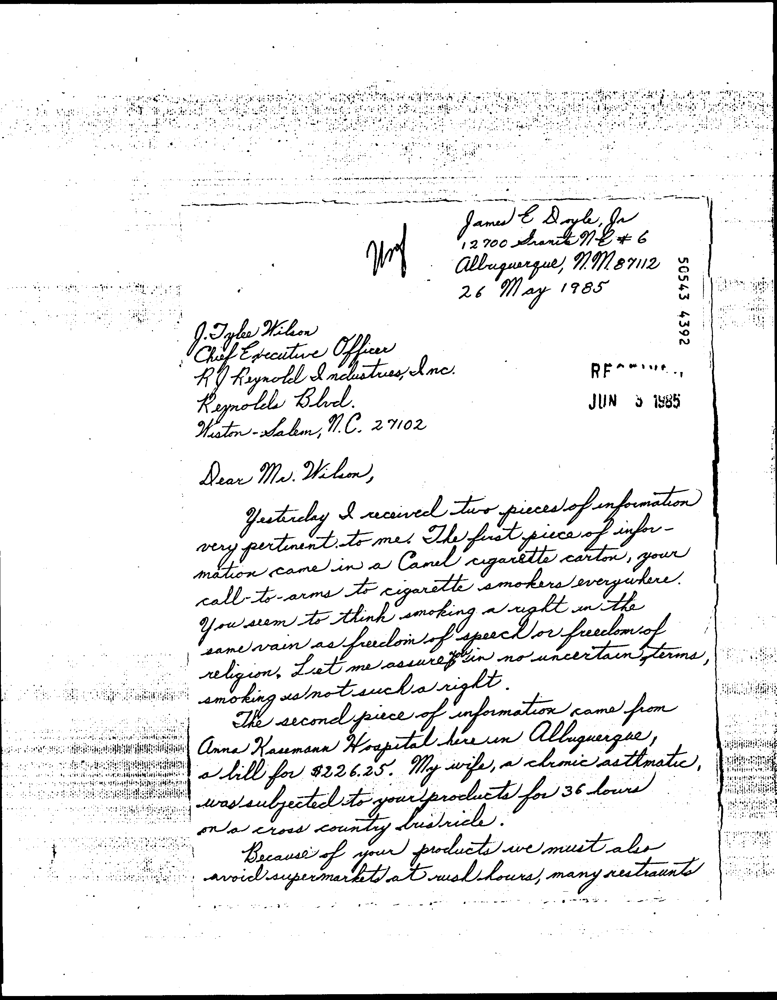 James E Doyle, Jr
12700 Granite NE # 6
Albuquerque, N.M 87112
26 May 1985
50543 4392
J. Tylee Wilson
Chief Executive Officer
RJ Reynold Industries, Inc.
Reynolds Blvd.
Wiston-Salem, N.C. 27102
JUN 1985
Dear Mr. Wilson,
Yesterday I received two pieces of information
very pertinent to me. The first piece of infor-
mation came in a Camel cigarette carton, your
call-to-arms to cigarette smokers everywhere.
You seem to think smoking a right in the
same vain as freedom of speech or freedom of
religion. Let me assure you in no uncertain terms,
smoking is not such a right.
The second piece of information came from
Anna Kasemann Hospital here in Albuquerque,
a bill for $226.25. My wife, a chronic asthmatic,
was subjected to your products for 36 hours
on a cross country bus ride.
Because of your products we must also
avoid supermarkets at rush hours, many restraunts